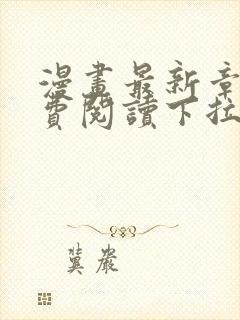 漫畫最新章
費閱讀下拉
冀嚴